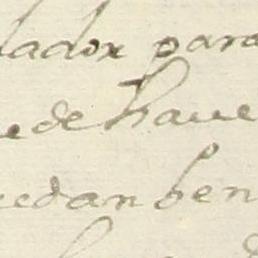 lador para
ede haue
edan ben